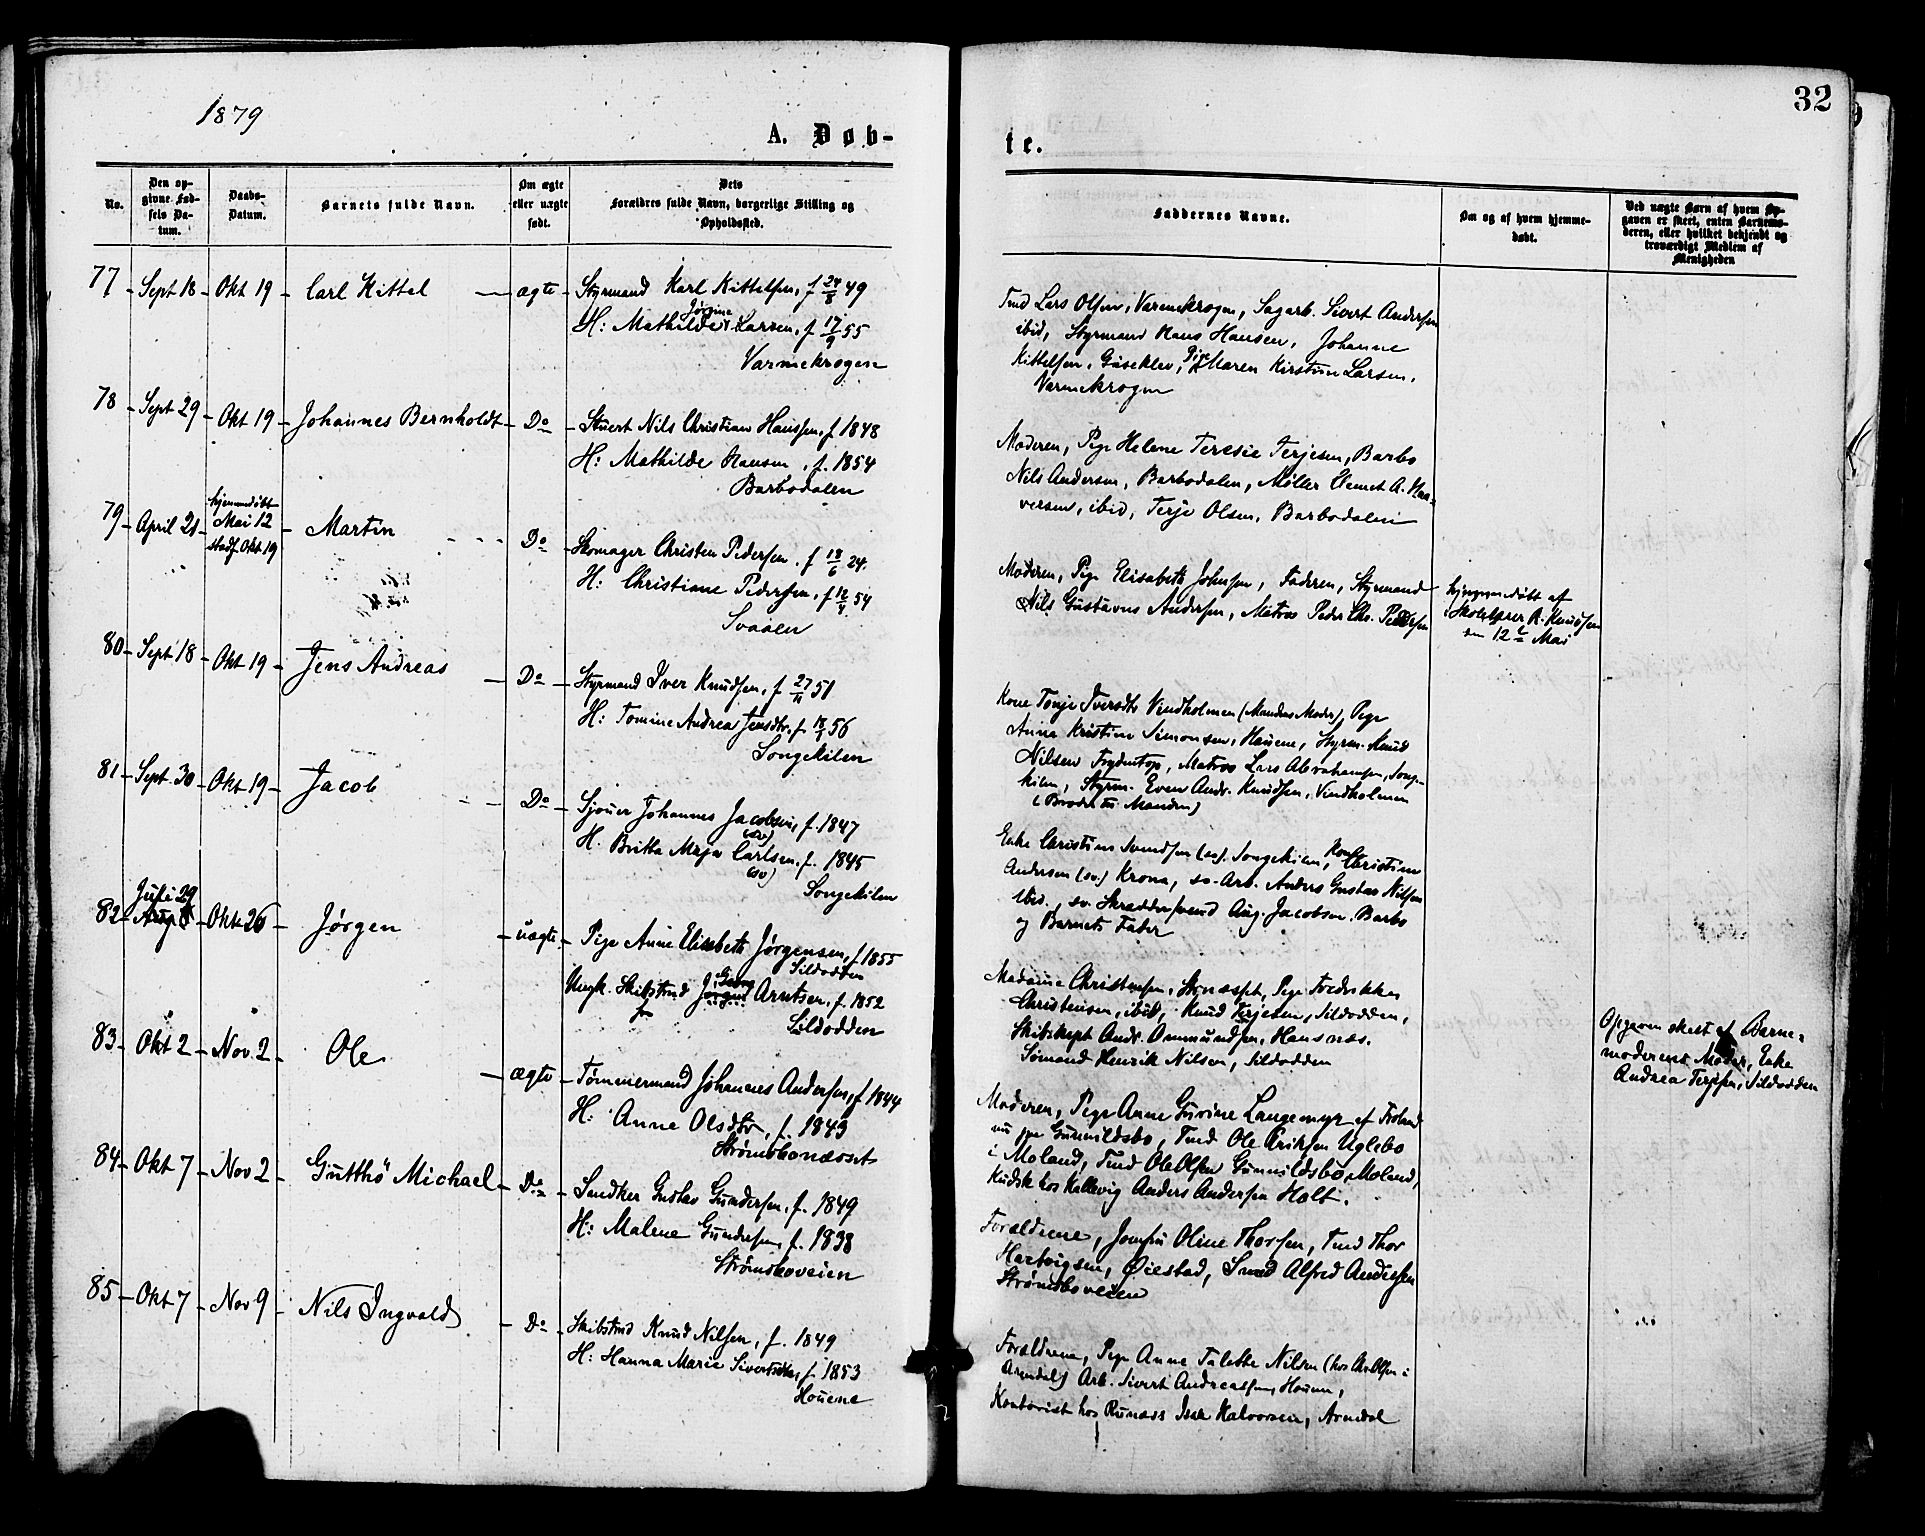 1879
32
A. Døb-
te.
No.
Den op-
givne Fød-
sels Da-
tum.
Daabs-
Datum.
Barnets fulde Navn.
Om ægte
eller uægte
født.
Dets
Forældres fulde Navn, borgerlige Stilling og
Opholdssted.
Faddernes Navne.
Om og af hvem hjemme-
døbt.
Ved uægte Børn af hvem Op-
gaven er skeet, enten Barnemo-
deren, eller hvilket bekjendt og
troværdigt Medlem af
Menigheden
77 Sept 18 Okt 19 Carl Kittel ægte
Styrmand Karl Kittelsen, f 24/8 49
Jørgine
H: Mathilde Larsen, f 17/9 55
Varmekrogen
Tmd Lars Olsen, Varmekrogen, Sagarb. Sivert Andersen
ibid, Styrmand Hans Hansen, Johanne
Kittelsen, Gåseklev, Pige Maren Kirstine Larsen,
Varmekrogen
78 Sept 29 Okt 19 Johannes Bernholdt Do
Stuert Nils Christian Hanssen, f 1848
H: Mathilde Hansen, f. 1854
Barbodalen
Moderen, Pige Helene Teresie Terjesen, Barbo
Nils Andersen, Barbodalen, Møller Clemet A. Haa-
versen, ibid, Terje Olsen, Barbodalen
79 April 21 hjemmedøbt
Mai 12
stadf. Okt 19 Martin Do
Skomager Christen Pedersen, f 18/6 24.
H: Christiane Pedersen, f 12/4 54
Svaalen
Moderen, Pige Elisabeth Johnsen, Faderen, Styrmand
Nils Gustavus Andersen, Matros Peder Chr. Pedersen
hjemmedøbt af
Skolelærer R. Knudsen
den 12te Mai
80 Sept 18 Okt 19 Jens Andreas Do
Styrmand Iver Knudsen, f 27/11 51
H: Tomine Andrea Jensdtr. f 18/1 56
Songekilen
Kone Tonje Iversdtr Vindholmen (Mandens Moder), Pige
Anna Kristine Simonsen, Hauene, Styrm. Knud
Nilsen Frydentop, Matros Lars Abrahamsen, Songe-
kilen, Styrm. Even Andr. Knudsen, Vindholmen
(Broder til Manden)
81 Sept. 30 Okt 19 Jacob Do
Sjouer Johannes Jacobsen, f. 1847
(sv)
H. Britta Maja Carlsen, f. 1845
(sv)
Songekilen
Enke Christine Svendsen (sv). Songekilen, Kone Christine
Andersen (sv.) Krona, sv. Arb. Anders Gustav Nilsen
ibid., sv. Skræddersvend Aug. Jacobsen, Barbo
og Barnets Fader
82 Juli 29
Aug. 8 Okt 26 Jørgen uægte
Pige Anne Elisabeth Jørgensen, f. 1855
Sildodden
Ungk. Skibstmd Georg Arntsen, f. 1852
Sildodden
Madame Christensen, Pige Fredrikke
Christensen, ibid, Knud Terjesen, Sildodden,
Skibskapt Andr. Ommundsen, Hansnæs.
Sømand Henrik Nilsen, Sildodden
Opgaven skeet af Barne-
moderens Moder, Enke
Andrea Terjesen, Sildodden
83 Okt 2 Nov. 2 Ole ægte
Tømmermand Johannes Andersen, f 1844
H: Anne Olsdtr, f. 1843
Strømsbonæsset
Moderen, Pige Anne Gurine Langemyr af Froland
nu paa Gunnildsbo, Tmd Ole Eriksen Uglebo
i Moland, Tmd Ole Olsen Gunnildsbo, Moland,
Kudsk hos Kallevig Anders Andersen Holt.
84 Okt 7 Nov 2 Gutthö Michael Do
Snedker Gustav Gundersen, f. 1849
H: Malene Gundersen, f. 1838
Strømsboveien
Forældrene, Jomfru Oline Thorsen, Tmd Thor
Hartvigsen, Øiestad, Smed Alfred Andersen
Strømsboveien
85 Okt 7 Nov 9 Nils Ingvald Do
Skibstmd Knud Nilsen, f. 1849
H: Hanna Marie Sivertsdtr, f 1853
Houene
Forældrene, Pige Anne Talette Nilsen (hos A. Olsen i
Arendal) Arb. Sivert Andreassen, Houene,
Kontorist hos Isak Halvorsen, Arendal